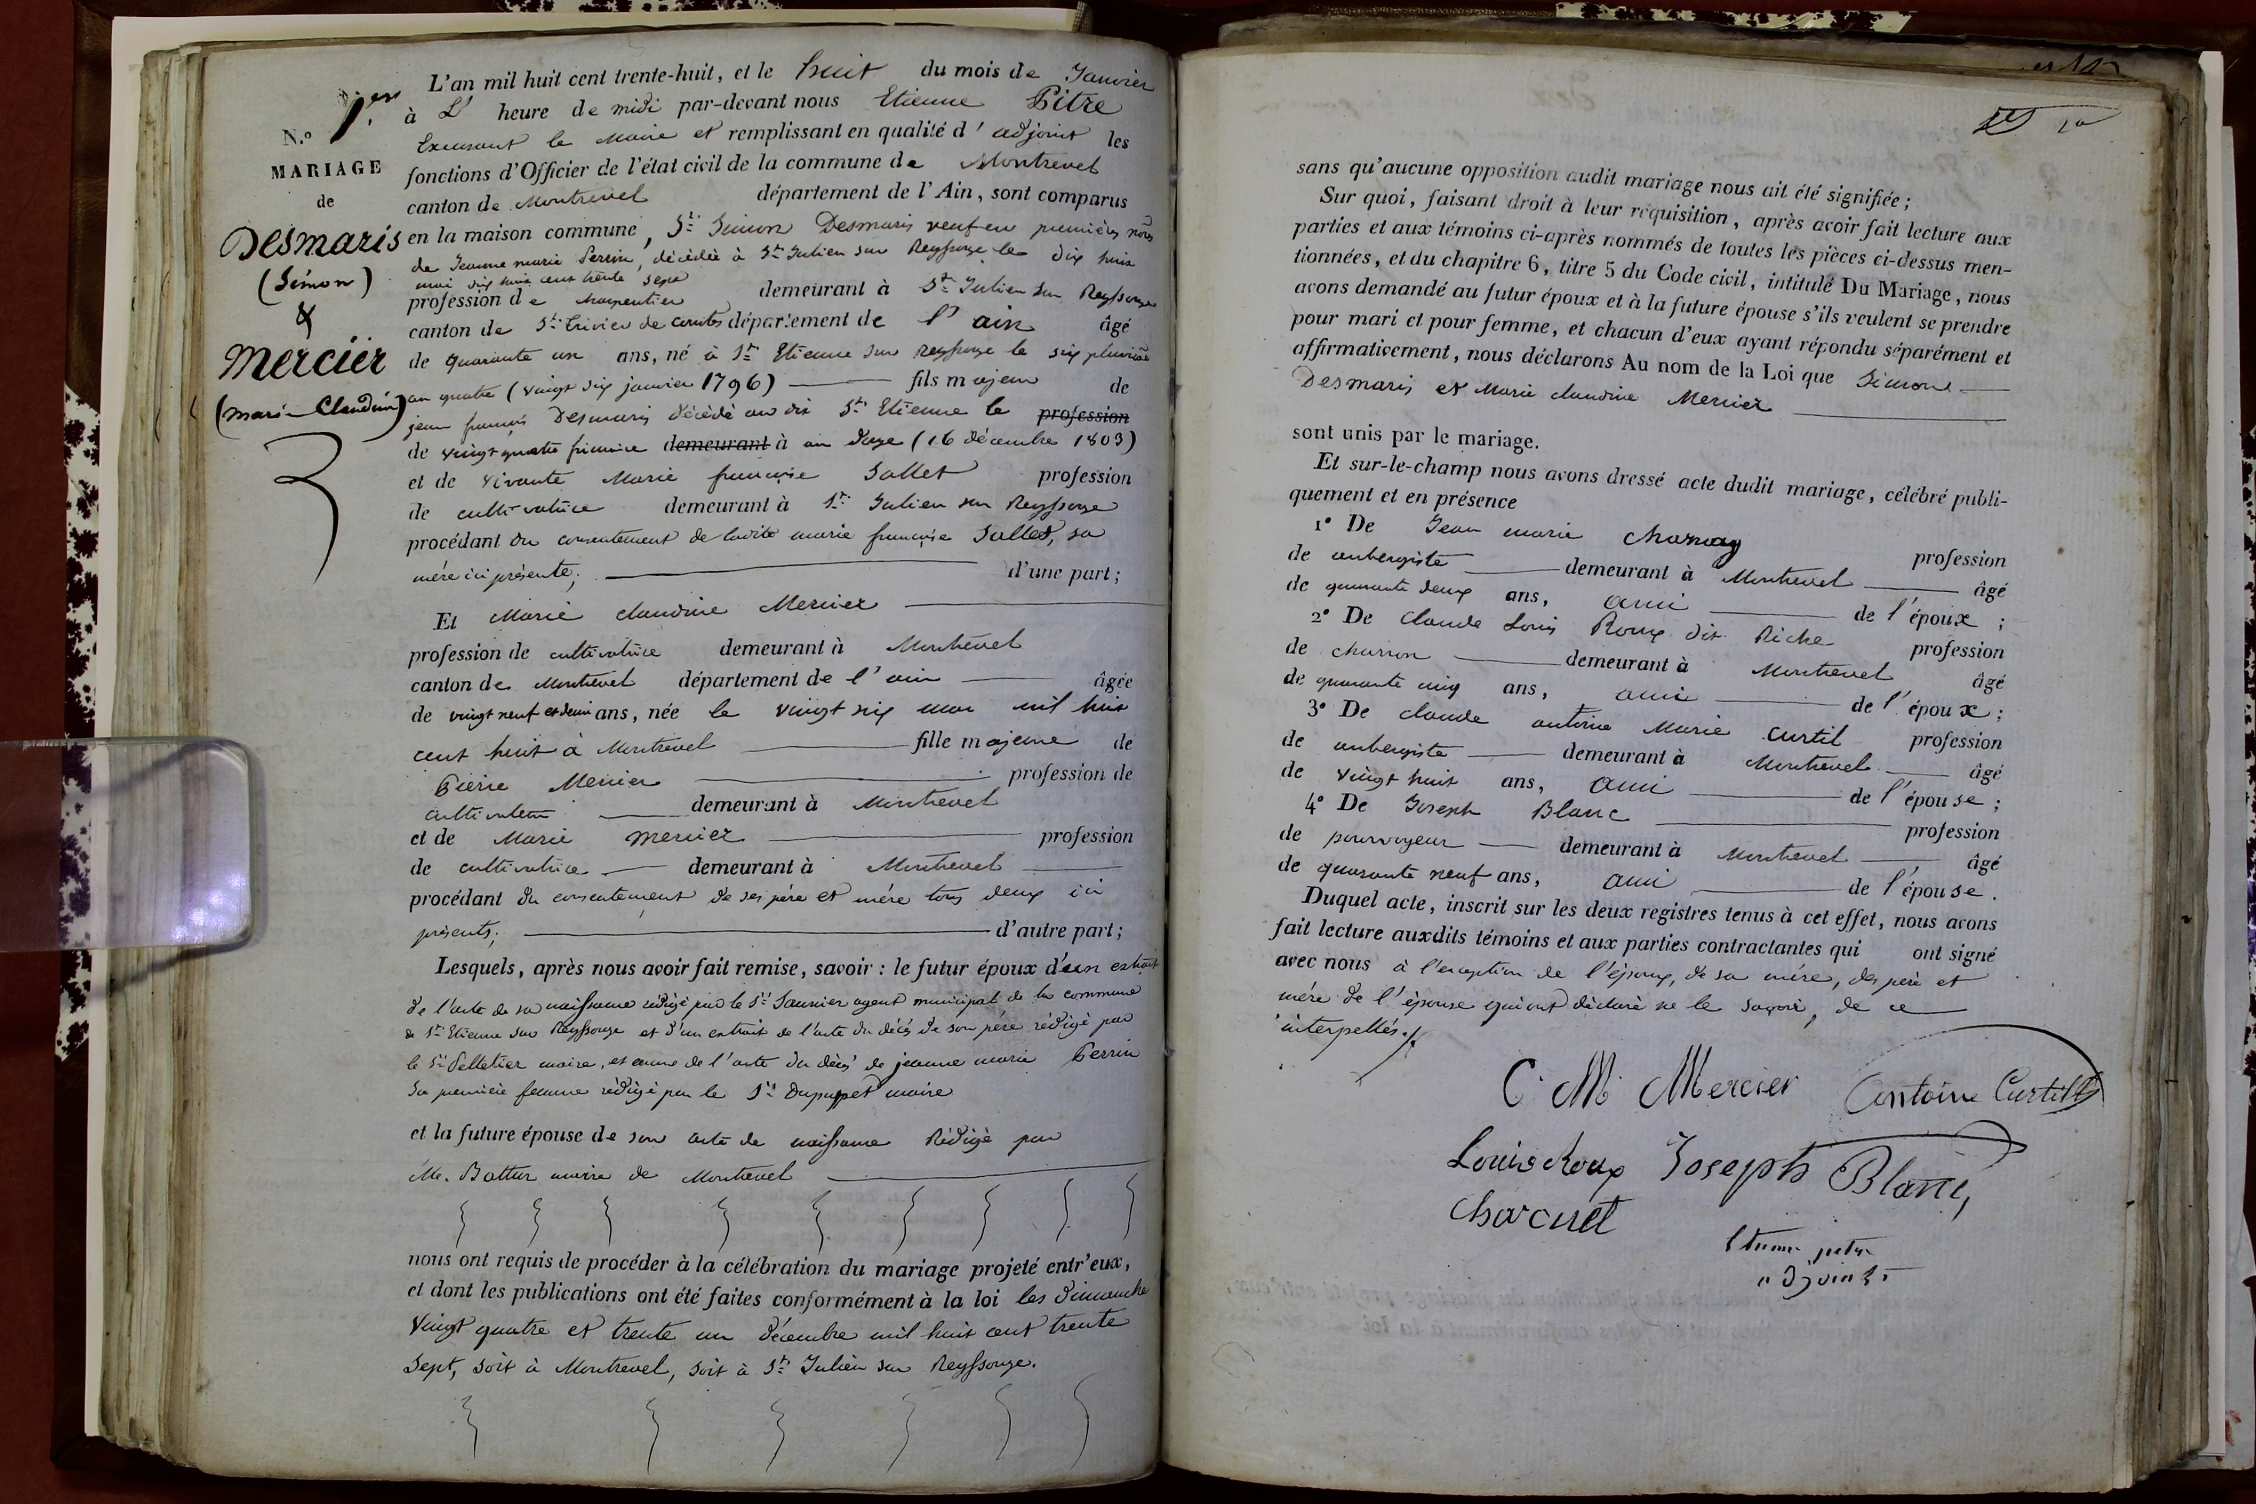 N.º 1.er
MARIAGE
de
Desmaris
(Simon)
&
Mercier
(Marie Claudine)
L'an mil huit cent trente-huit, et le huit du mois de Janvier
à L' heure de midi par-devant nous Etienne Pitre
le Maire et remplissant en qualité d'adjoint les
fonctions d'Officier de l'état civil de la commune de Montrevel
canton de Montrevel département de l'Ain, sont comparus
en la maison commune, Sr. Simon Desmaris veuf en premières noces
de Jeanne marie Perrin, décédée à St. Julien sur Reyssouze le dix huit
mai dix huit cent trente sept
profession de charpentier demeurant à St. Julien sur Reyssouze
canton de St. trivier de courtes département de l'ain âgé
de quarante un ans, né à St. Etienne sur Reyssouze le six pluviose
an quatre (vingt six janvier 1796) fils majeur de
jean françois Desmaris décédé au dit St. Etienne le profession
de vingt quatre frimaire demeurant à an douze (16 décembre 1803)
et de vivante Marie françoise Sallet profession
de cultivatrice demeurant à St. Julien sur Reyssouze
procédant du consentement de ladite marie françoise Sallet, sa
mére ici présente; d'une part;
Et Marie claudine Mercier
profession de cultivatrice demeurant à Montrevel
canton de Montrevel département de l'ain âgée
de vingt neuf et demi ans, née le vingt six mai mil huit
cent huit à Montrevel fille majeure de
Pierre Mercier profession de
cultivateur demeurant à Montrevel
et de Marie Mercier profession
de cultivatrice demeurant à Montrevel
procédant du consentement de ses pére et mére tous deux ici
présents; d'autre part;
Lesquels, après nous avoir fait remise, savoir : le futur époux d'un extrait
de l'acte de sa naissance rédigé par le Sr. Saunier agent municipal de la commune
de St. Etienne sur Reyssouze et d'un extrait de l'acte du décés de son pére rédigé par
le Sr. Pelletier maire, et de l'acte du décés de jeanne marie Perrin
sa première femme rédigé par le Sr. Dupuppet maire
et la future épouse de son acte de naissance Rédigé par
Me. Bottur maire de Montrevel
nous ont requis de procéder à la célébration du mariage projeté entr'eux,
et dont les publications ont été faites conformément à la loi les dimanche
vingt quatre et trente un décembre mil huit cent trente
sept, soit à Montrevel, soit à St. Julien sur Reyssouze.
sans qu'aucune opposition audit mariage nous ait été signifiée;
Sur quoi, faisant droit à leur réquisition, après avoir fait lecture aux
parties et aux témoins ci-après nommés de toutes les pièces ci-dessus men-
tionnées, et du chapitre 6, titre 5 du Code civil, intitulé Du Mariage, nous
avons demandé au futur époux et à la future épouse s'ils veulent se prendre
pour mari et pour femme, et chacun d'eux ayant répondu séparément et
affirmativement, nous déclarons Au nom de la Loi que Simon
Desmaris et Marie claudine Mercier
sont unis par le mariage.
Et sur-le-champ nous avons dressé acte dudit mariage, célébré publi-
quement et en présence
1º De Jean marie profession
de aubergiste demeurant à Montrevel âgé
de quarante deux ans, ami de l'époux ;
2º De Claude Louis Roux dit Riche profession
de charron demeurant à Montrevel âgé
de quarante cinq ans, ami de l'époux ;
3º De claude antoine Marie Curtil profession
de aubergiste demeurant à Montrevel âgé
de vingt huit ans, ami de l'épouse ;
4º De Joseph Blanc profession
de pourvoyeur demeurant à Montrevel âgé
de quarante neuf ans, ami de l'épouse.
Duquel acte, inscrit sur les deux registres tenus à cet effet, nous avons
fait lecture auxdits témoins et aux parties contractantes qui ont signé
avec nous à l'exception de l'époux, de sa mére, des père et
mére de l'épouse qui ont déclaré ne le savoir, de ce
interpellés.
C. M. Mercier Antoine Curtil
Louis Roux Joseph Blanc
Etienne pitre
adjoint